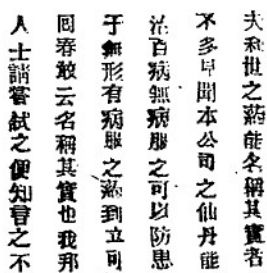 夫利世之藥能名稱其實者
不多早聞本公司之仙丹能
治百病無病服之可以防患
于無形有病服之藥到立可
回春敢云名稱其實也我邦
人士請嘗試之便知言之不